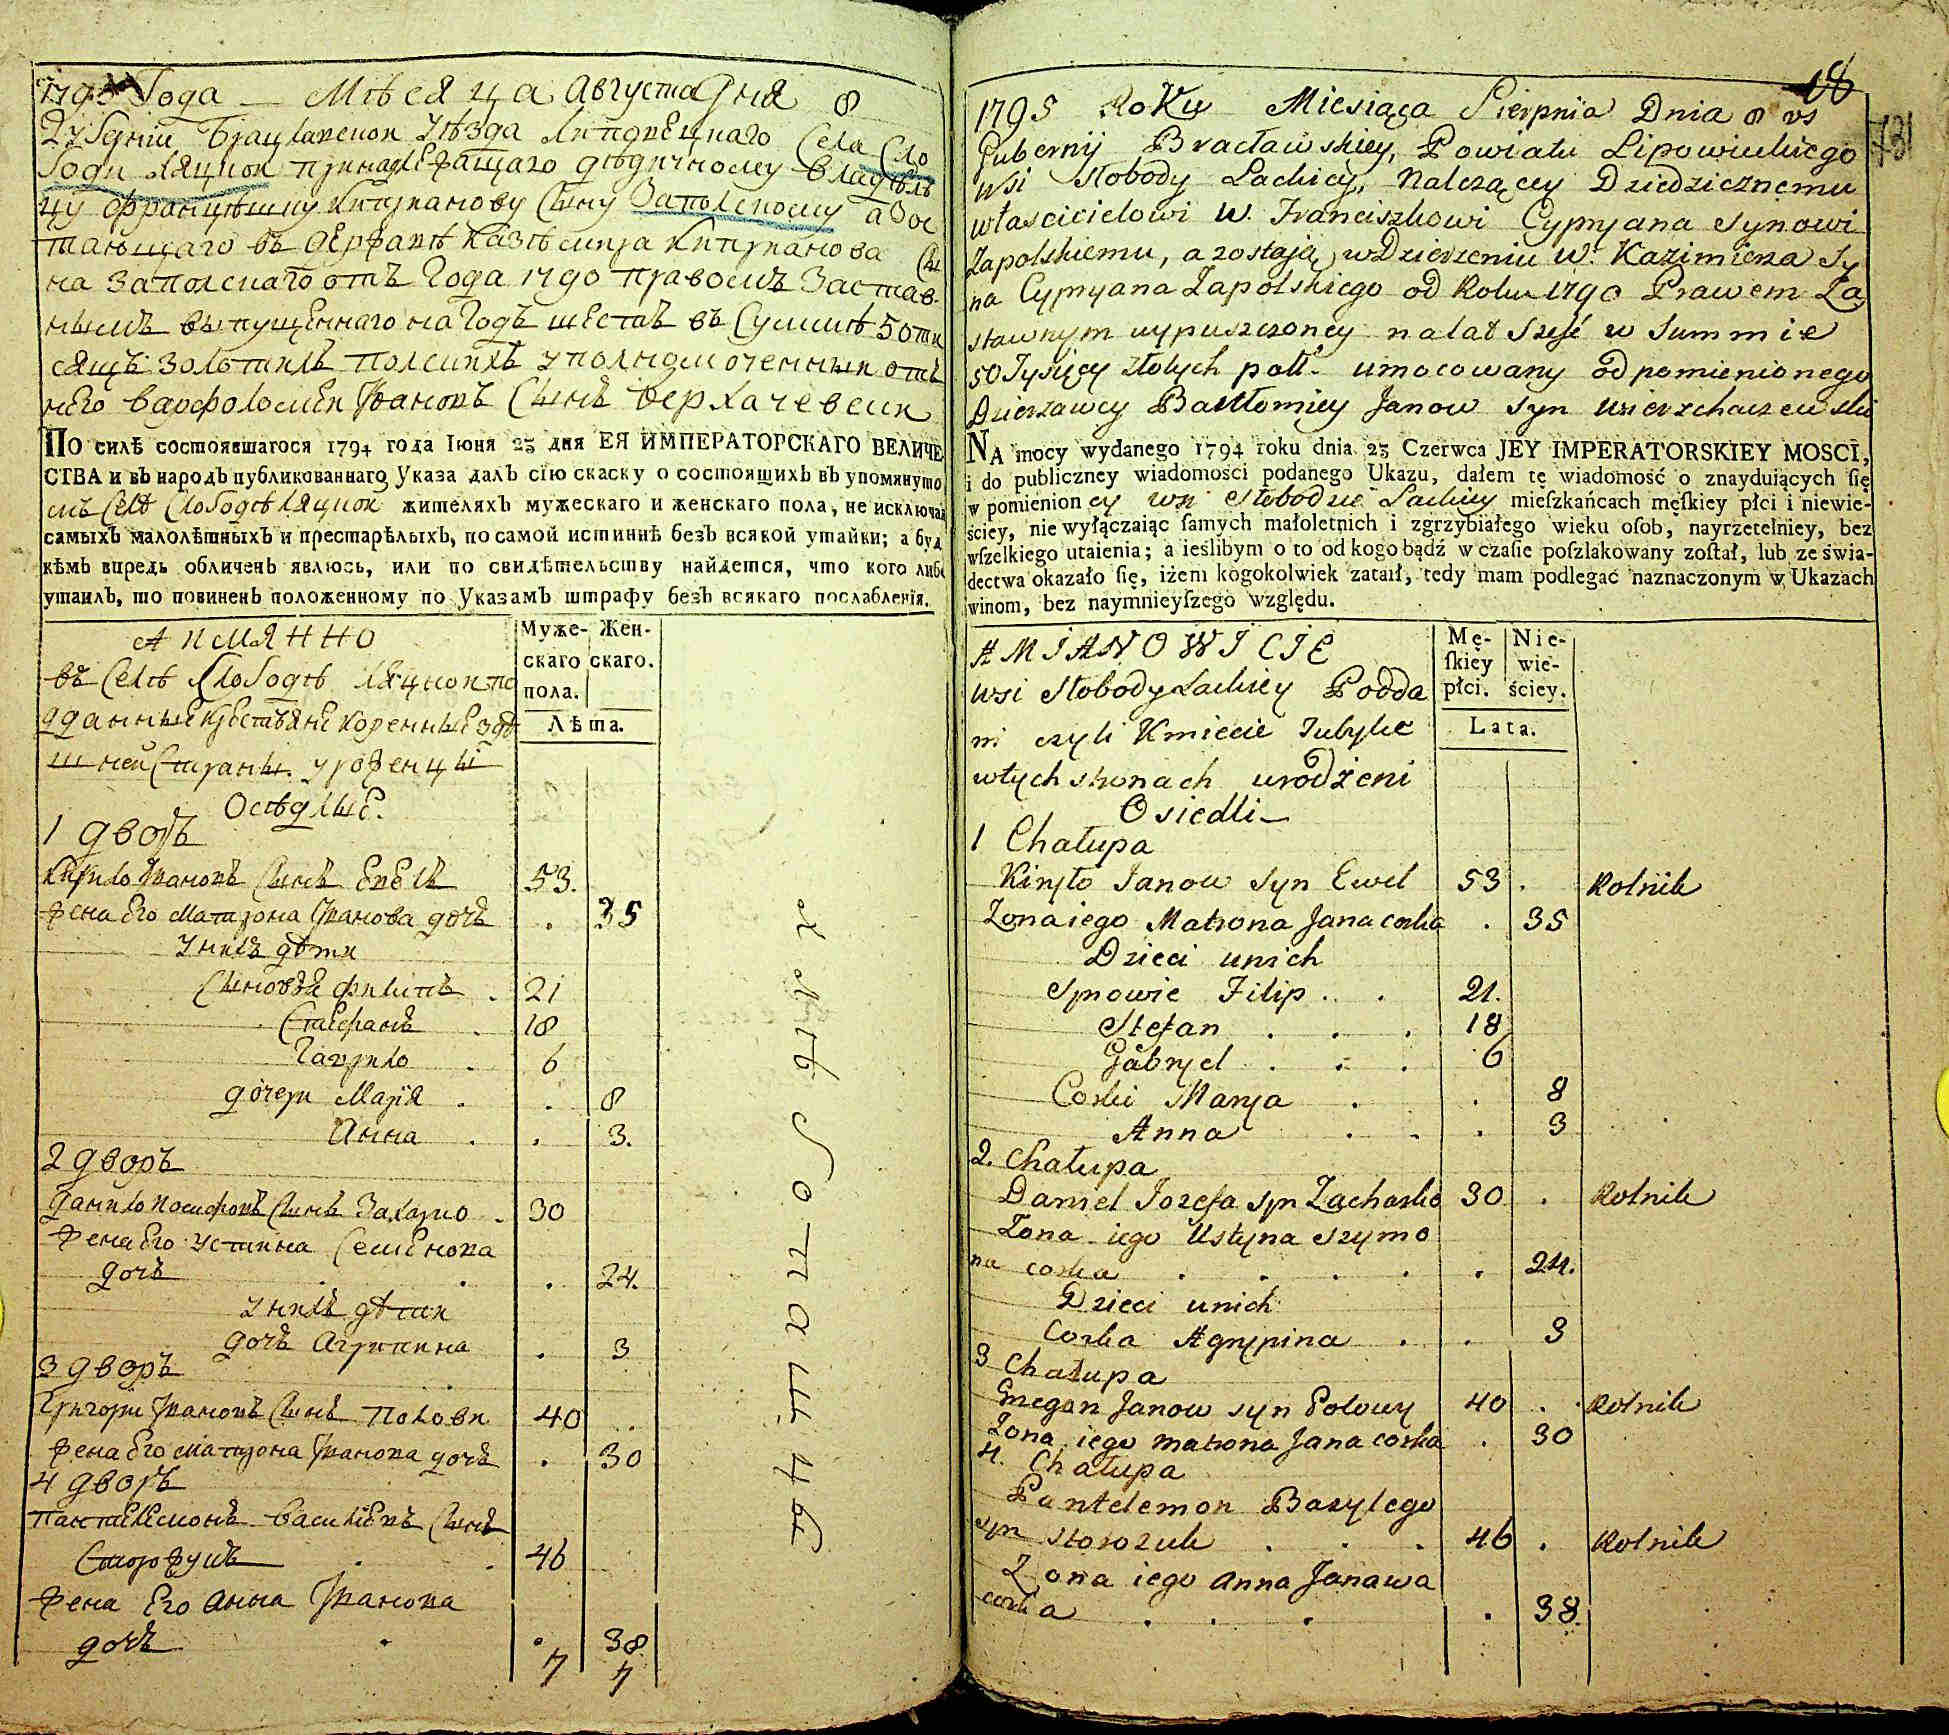 1795 Года — Мѣсяца Августа Дня 8
Губерніи Брацлавской уѣзда Липовецкаго Села Сло
боди Ляцкой принадлежащаго дѣдичному владѣль
цу Францѣшку Кипріанову Сыну Запольскому а Зос
тающаго въ держанѣ Казѣмира Кипріанова Сы
на Запольскаго отъ Года 1790 правомъ Застав
нымъ выпущеннаго на Годъ шесть въ Суммѣ 50 ти
сящъ Золотихъ польскихъ уполномоченный отъ
него Варфоломей Ивановъ Сынъ
ПО силѣ состоявшагося 1794 года Іюня 23 дня ЕЯ ИМПЕРАТОРСКАГО ВЕЛИЧЕ
СТВА и въ народъ публикованнаго Указа далъ сію скаску о состоящихъ въ упомянуто
мъ Селѣ Слободѣ Ляцкой жителяхъ мужескаго и женскаго пола, не исключая
самыхъ малолѣтныхъ и престарѣлыхъ, по самой истиннѣ безъ всякой утайки; а буд
кѣмъ впредь обличенъ явлюсь, или по свидѣтельству найдется, что кого либо
утаилъ, то повиненъ положенному по Указамъ штрафу безъ всякаго послабленія.
А ИМЯННО
Муже- Жен-
скаго скаго.
пола.
Лѣта.
въ Селѣ Слободѣ Ляцкой по
дданные крестьяне коренные здѣ
шней Страны уроженцы
Осѣдлые.
1 дворъ
Кирило Ивановъ Сынъ Евель 53.
Жена Его Матрона Иванова дочь . 35
У нихъ дѣти
Сыновья Филипъ . 21
Стефанъ . 18
Гаврило . 6
дочери Марія . . 8
Анна . . 3.
2 дворъ
Данило Иосифовъ Сынъ Захарко . 30
Жена Его Устина Семенова
дочь . . . 24.
У нихъ дѣти
дочь Агрипина . 3
3 дворъ
Григори Ивановъ Сынъ Половы 40
Жена Его Матрона Иванова дочь . 30
4 дворъ
Пантелемонъ Василіевъ Сынъ
Сторожукъ . . 46
Жена Его Анна Иванова
дочь . . 38.
7 7
18
731
1795 Roku Miesiąca Sierpnia Dnia 8 vs
Gubernij Bracławskiey, Powiatu Lipowieckiego
wsi Słobody Lackiey, Należącey Dziedzicznemu
włascicielowi W. Franciszkowi Cypryana Synowi
Zapolskiemu, a zostającey w Dzierzeniu W. Kazimierza Sy
na Cypryana Zapolskiego od Roku 1790 Prawem Za
stawnym wypuszczoney na lat sześć w Summie
50 Tysięcy złotych pols. umocowany od pomienionego
Dzierzawcy Bartłomiey Janow syn Wierzchaczewski
NA mocy wydanego 1794 roku dnia 23 Czerwca JEY IMPERATORSKIEY MOSCI,
i do publiczney wiadomości podanego Ukazu, dałem tę wiadomość o znayduiących ſię
w pomienioney wsi Słobodzie Lackiey mieſzkańcach męſkiey płci i niewie-
ściey, nie wyłączaiąc ſamych małoletnich i zgrzybiałego wieku oſob, nayrzetelniey, bez
wſzelkiego utaienia; a ieślibym o to od kogo bądź w czaſie poſzlakowany zoſtał, lub ze świa-
dectwa okazało ſię, iżem kogokolwiek zataił, tedy mam podlegać naznaczonym w Ukazach
winom, bez naymnieyſzego względu.
AMIANOWICIE
Mę- Nie-
ſkiey wie-
płci. ściey.
Lata.
wsi Słobody Lackiey Podda
ni czyli Kmiecie
w tych stronach urodzeni
Osiedli
1 Chałupa
Kiryło Janow syn Ewel 53 . Rolnik
Zona iego Matrona Jana corka . 35
Dzieci u nich
Synowie Filip . . 21.
Stefan . . . 18
Gabryel . . . 6
Corki Marya . . 8
Anna . . . 3
2. Chałupa
Daniel Jozefa syn Zacharko 30 . Rolnik
Zona iego Ustyna Szymo
na corka . . . . . 24.
Dzieci u nich
Corka Agrypina . . 3
3 Chałupa
Gregor Janow syn Połowy 40 . Rolnik
Zona iego Matrona Jana corka . 30
4. Chałupa
Pantelemon Bazylego
syn Storozuk . . . 46 . Rolnik
Zona iego Anna Janawa
corka . . . . 38.